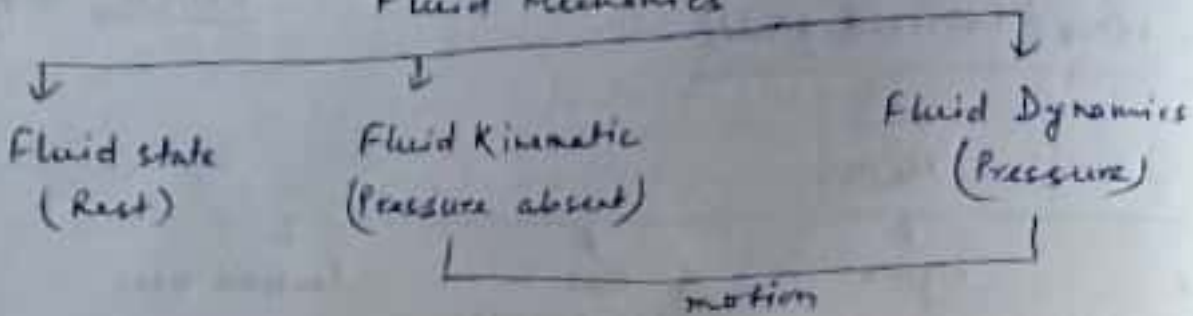 Fluid Mechanics
Fluid state
(Rest)
Fluid Kinematic
(Pressure absent)
Fluid Dynamics
(Pressure)
motion